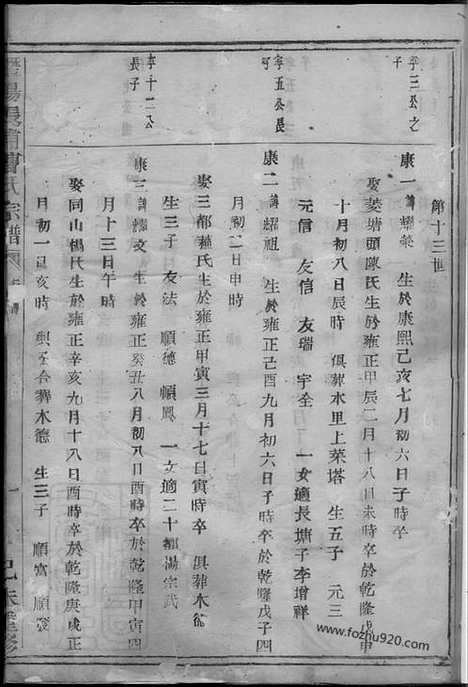 第十三世
李三公之子
康一諱耀榮 生於康熙己亥七月初六日子時卒
娶菱塘頭陳氏生於雍正甲辰二月十八日未時卒於乾隆戊申
十月初八日辰時 俱葬水里上菜塔 生五子 元三
元信 友信 友瑞 宇全 一女適長塘子李增祥
李五公長子
康二諱耀祖 生於雍正己酉九月初六日子時卒於乾隆戊子四
月初二日申時
娶三都羅氏生於雍正甲寅三月十七日寅時卒 俱葬木德
生三子 友法 順德 順鳳 一女適二十都湯宗武
李十二公長子
康三諱耀文 生於雍正癸丑八月初八日酉時卒於乾隆甲寅四
月十三日午時
娶同山楊氏生於雍正辛亥九月十八日酉時卒於乾隆庚戌正
月初一日亥時 合葬木德 生三子 順富 順發
氏宗譜
www.fozhu920.com